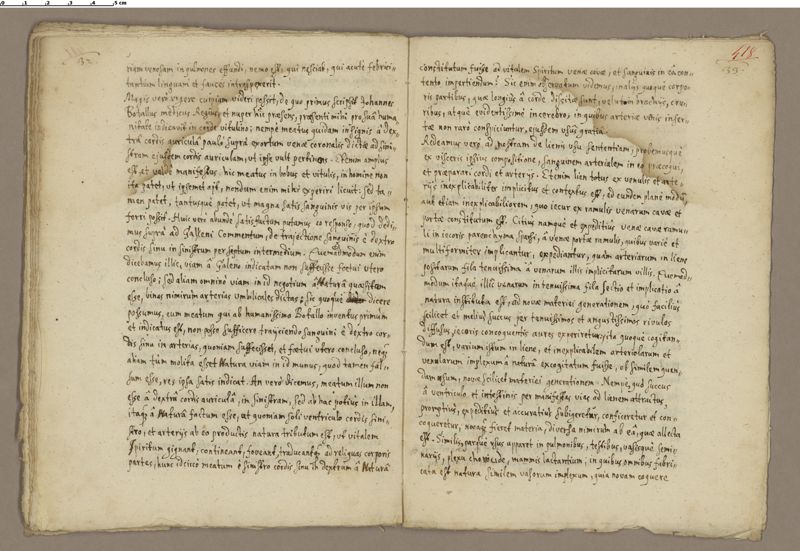 0 1 2 3 4 5 cm
32.
riam venosam in pulmones effundi, nemo est, qui nesciat, qui acute febrici-
tantium linguam et fauces introspexerit.
Magis vero rigere cuipiam videri possit, de quo primus scripsit Johannes
Botallus medicus Regius, et nuper hic præsens, præsenti mihi pro sua huma
nitate indicavit in corde vitulino; nempe meatus quidam insignis a dex,,
tra cordis auricula paulo supra exortum venæ coronalis dictæ ad sini,,
stram ejusdem cordis auriculam, ut ipse vult pertinens. Etenim amplus
est, et valde manifestus hic meatus in bobus et vitulis, in homine non
ita patet, ut ipsemet ait, nondum enim mihi experiri licuit: sed ta,,
men patet, tantusque patet, ut magna satis sanguinis vis per ipsum
ferri possit. Huic vero abunde satisfactum putamus eo responso, quod dedi,,
mus supra ad Galeni Commentum, de trajectione sanguinis e dextro
cordis sinu in sinistrum per septum intermedium. Quemadmodum enim
dicebamus illic, viam a Galeno indicatam non suffecisse foetui utero
concluso; sed aliam omnino viam in id negotium a Natura quæsitam
esse, binos nimirum arterias umbilicales dictas; sic quoque dicere
possumus, eum meatum qui ab humanissimo Botallo inventus primum
et indicatus est, non posse sufficere trajiciendo sanguini e dextro cor-
dis sinu in arterias, quoniam suffecisset, et fœtui utero concluso, neq;
aliam tum molita esset Natura viam in id munus, quod tamen fal-
sum esse, res ipsa satis indicat. An vero dicemus, meatum illum non
esse a dextra cordis auricula, in sinistram, sed ab hac potius in illam,
itaq; a Natura factum esse, ut quoniam soli ventriculo cordis sini,,
stro, et arterijs ab eo productis natura tributum est, ut vitalem
spiritum gignant, contineant, foveant, traducantq; ad reliquas corporis
partes, hunc idcirco meatum e sinistro cordis sinu in dextrum a Natura
418
33.
constitutum fuisse ad vitalem spiritum venæ cavæ, et sanguini in ea con,,
tento impertiendum? Sic enim observatum videmus, in alijs quoque corpo-
ris partibus, quæ longius a corde dissitæ sunt, velut in brachijs, cru,,
ribus, atque evidentissime in cerebro, in quibus arteriæ venis inser,,
tæ non raro conspiciuntur, ejusdem usus gratia.
Redeamus vero ad nostram de lienis usu sententiam, probemusque
ex visceris ipsius compositione, sanguinem arterialem in eo præcoqui,
et præparari cordi et arterijs. Etenim lien totus ex venulis et arte,,
rijs inexplicabiliter implicitus et contextus est, ad eundem plane modum,
aut etiam inexplicabiliorem, quo jecur ex ramulis venarum cavæ et
portæ constitutum est. Citius namque et expeditius venæ cavæ ramu,,
li in jecoris parenchyma sparsi, a venæ portæ ramulis, quibus varie et
multiformiter implicantur, expediantur, quam arteriarum in liene
positarum fila tenuissima a venarum illis implicitarum villis. Quemad,,
modum itaque illic venarum in tenuissima fila sectio et implicatio a
natura instituta est, ad novæ materiei generationem, quo facilius
scilicet et melius succus per tenuissimos et angustissimos rivulos
diffusus, jecoris concoquentis aures experiretur; ita quoque cogitan-
dum est, varium istum in liene, et inexplicabilem arteriolarum et
venularum implexum a natura excogitatum fuisse, ob similem quen,
dam usum, novæ scilicet materiei generationem. Nempe, quo succus
a ventriculo et intestinis per manifestas vias ad lienem attractus,
promptius, expeditius et accuratius subigeretur, conficeretur et con,,
coqueretur, novaq; fieret materia, diversa nimirum ab ea, quæ allecta
est. Similis porque usus apparet in pulmonibus, testibus, vasisque semi-
narijs, plexu choroeide, mammis lactantium; in quibus omnibus fabri-
cata est natura similem vasorum implexum, quia novam coquere